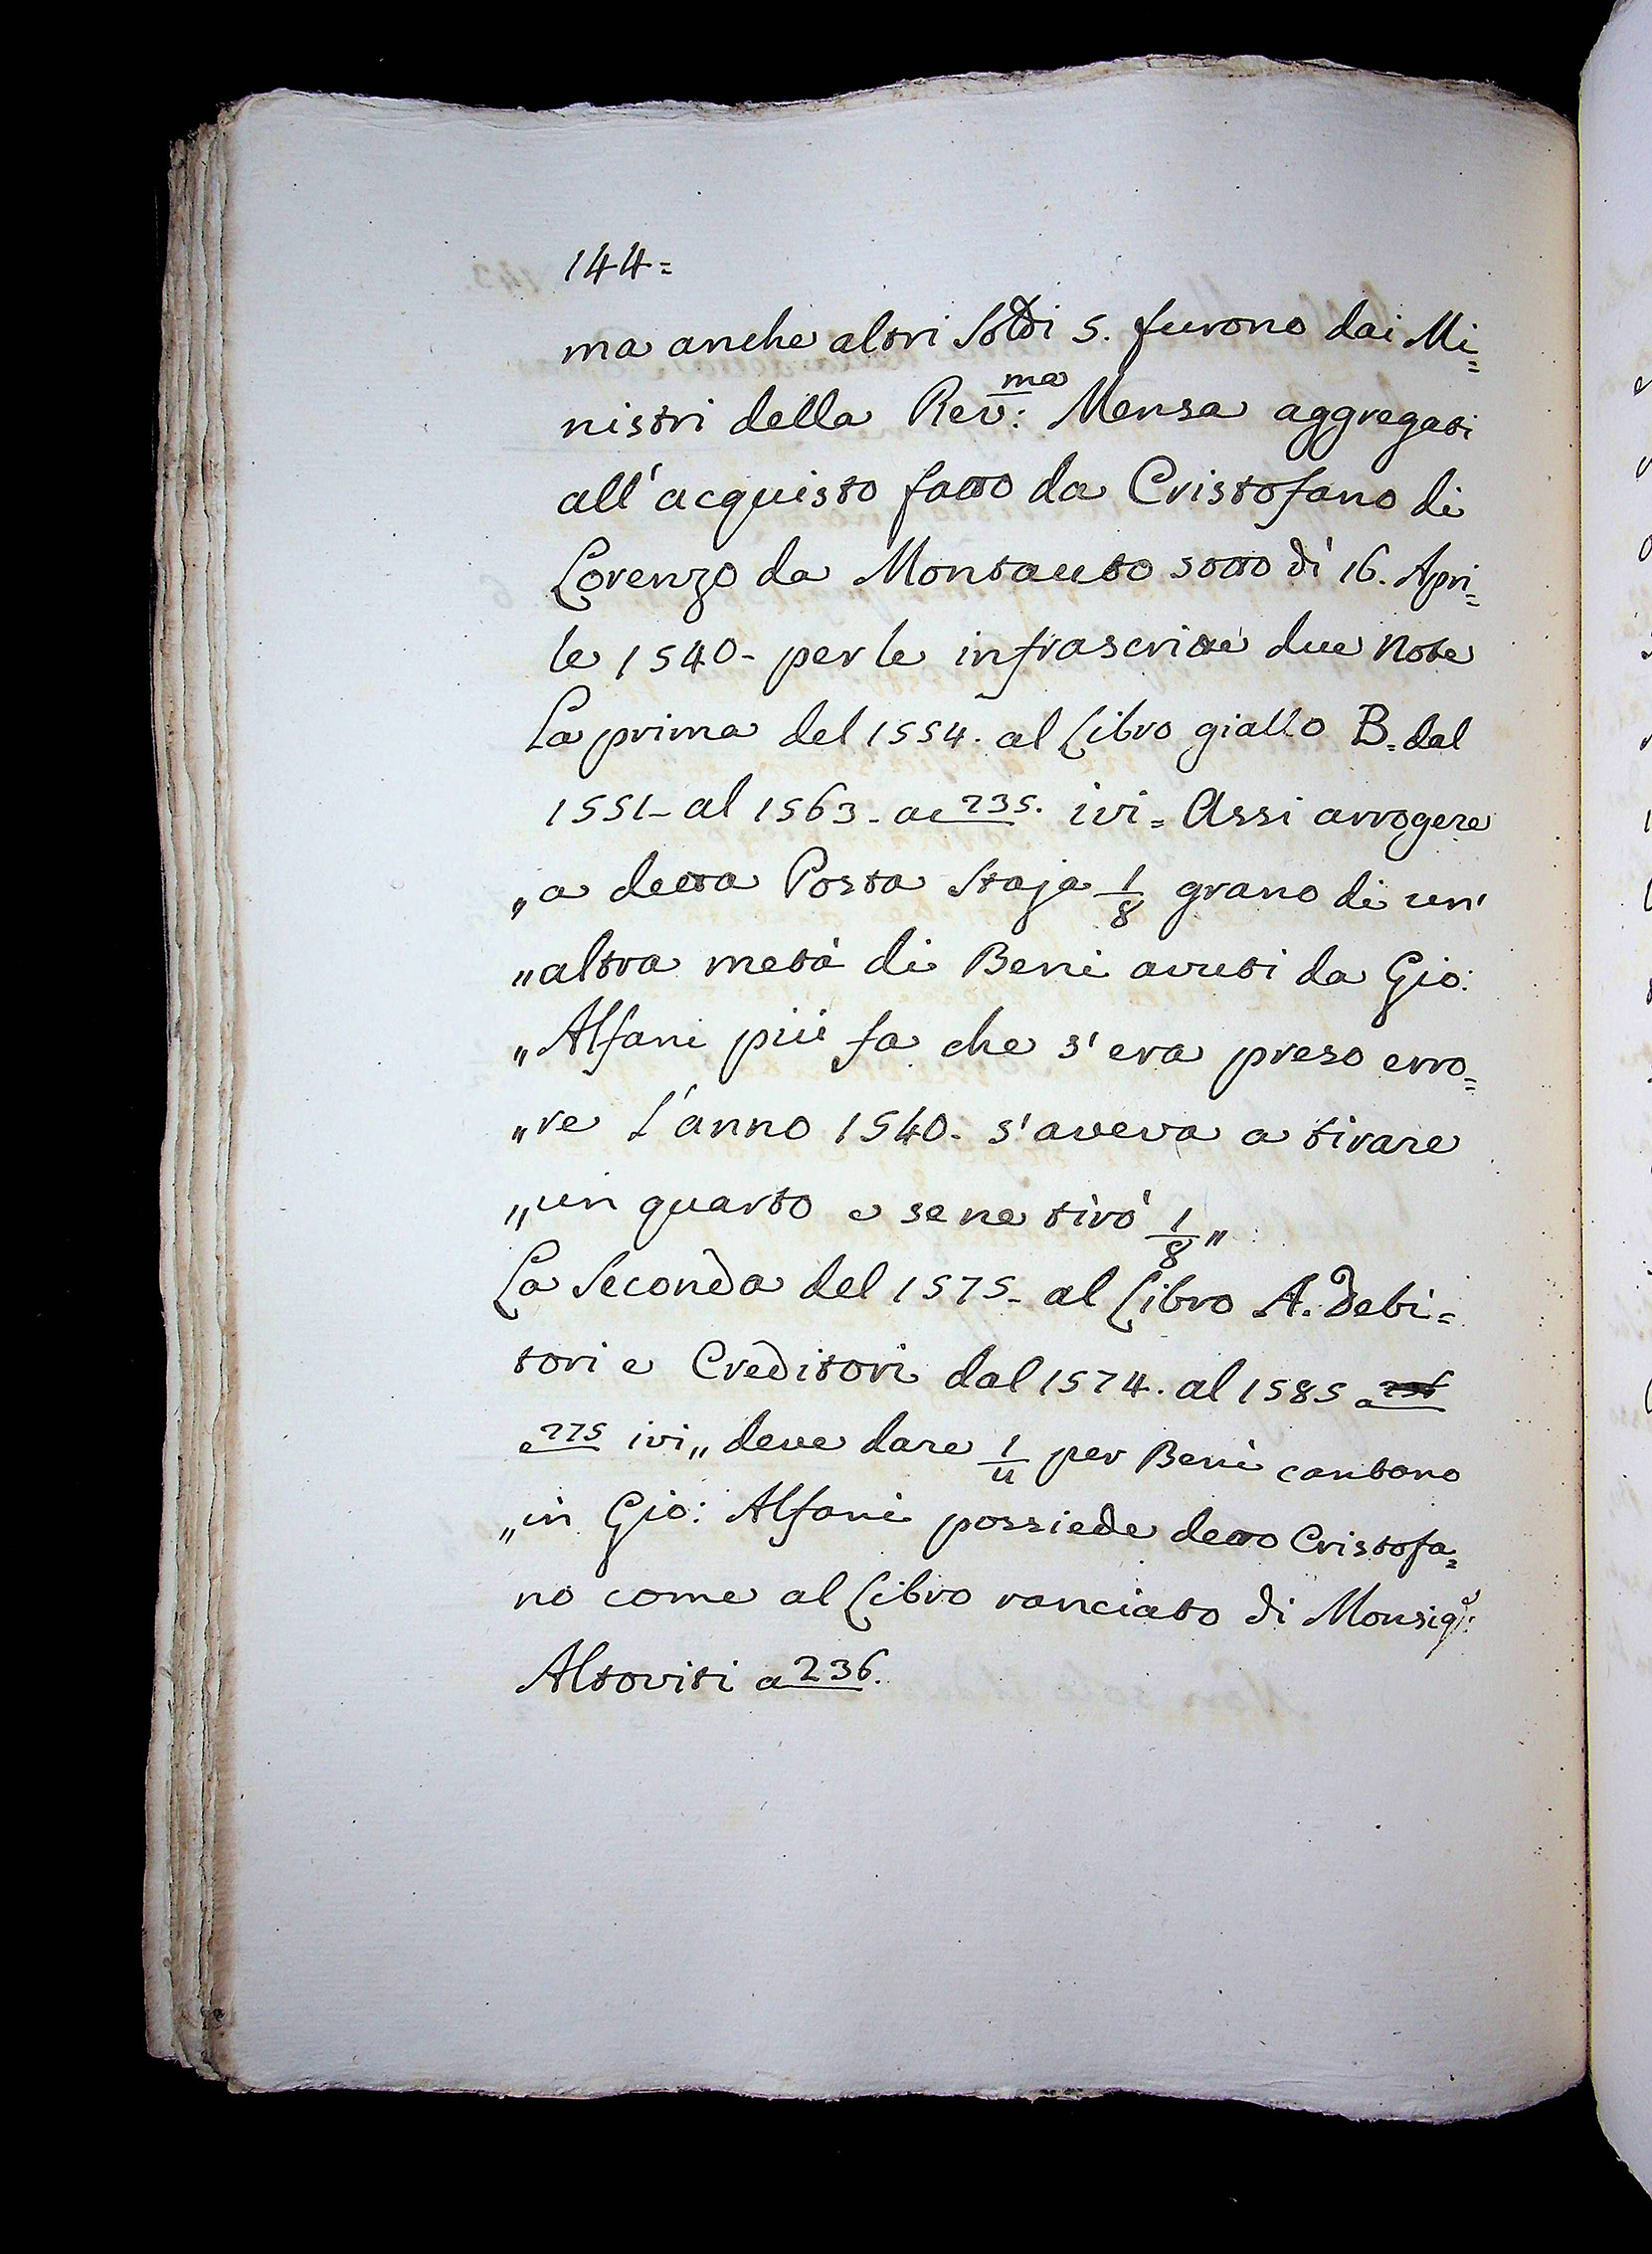 144=
ma anche altri Soldi 5. furono dai Mi=
nistri della Rev:ma Mensa aggregati
all'acquisto fatto da Cristofano di
Lorenzo da Montauto sotto dì 16. Apri=
le 1540- per le infrascritte due Note
La prima del 1554. al Libro giallo B. dal
1551- al 1563- ac 235. ivi= Assi arrogere
„a detta Posta Staja 1/8 grano di un'
„altra metà di Beni avuti da Gio:
„Alfani più fa che s'era preso erro=
„re L'anno 1540- s'aveva a tirare
„un quarto e se ne tirò 1/8„
La Seconda del 1575- al Libro A. Debi=
tori e Creditori dal 1574. al 1585 a 236
a 275 ivi„ deve dare 1/4 per Beni cantano
„in Gio: Alfani possiede detto Cristofa=
no come al Libro ranciato di Monsigr:
Altoviti a 236.